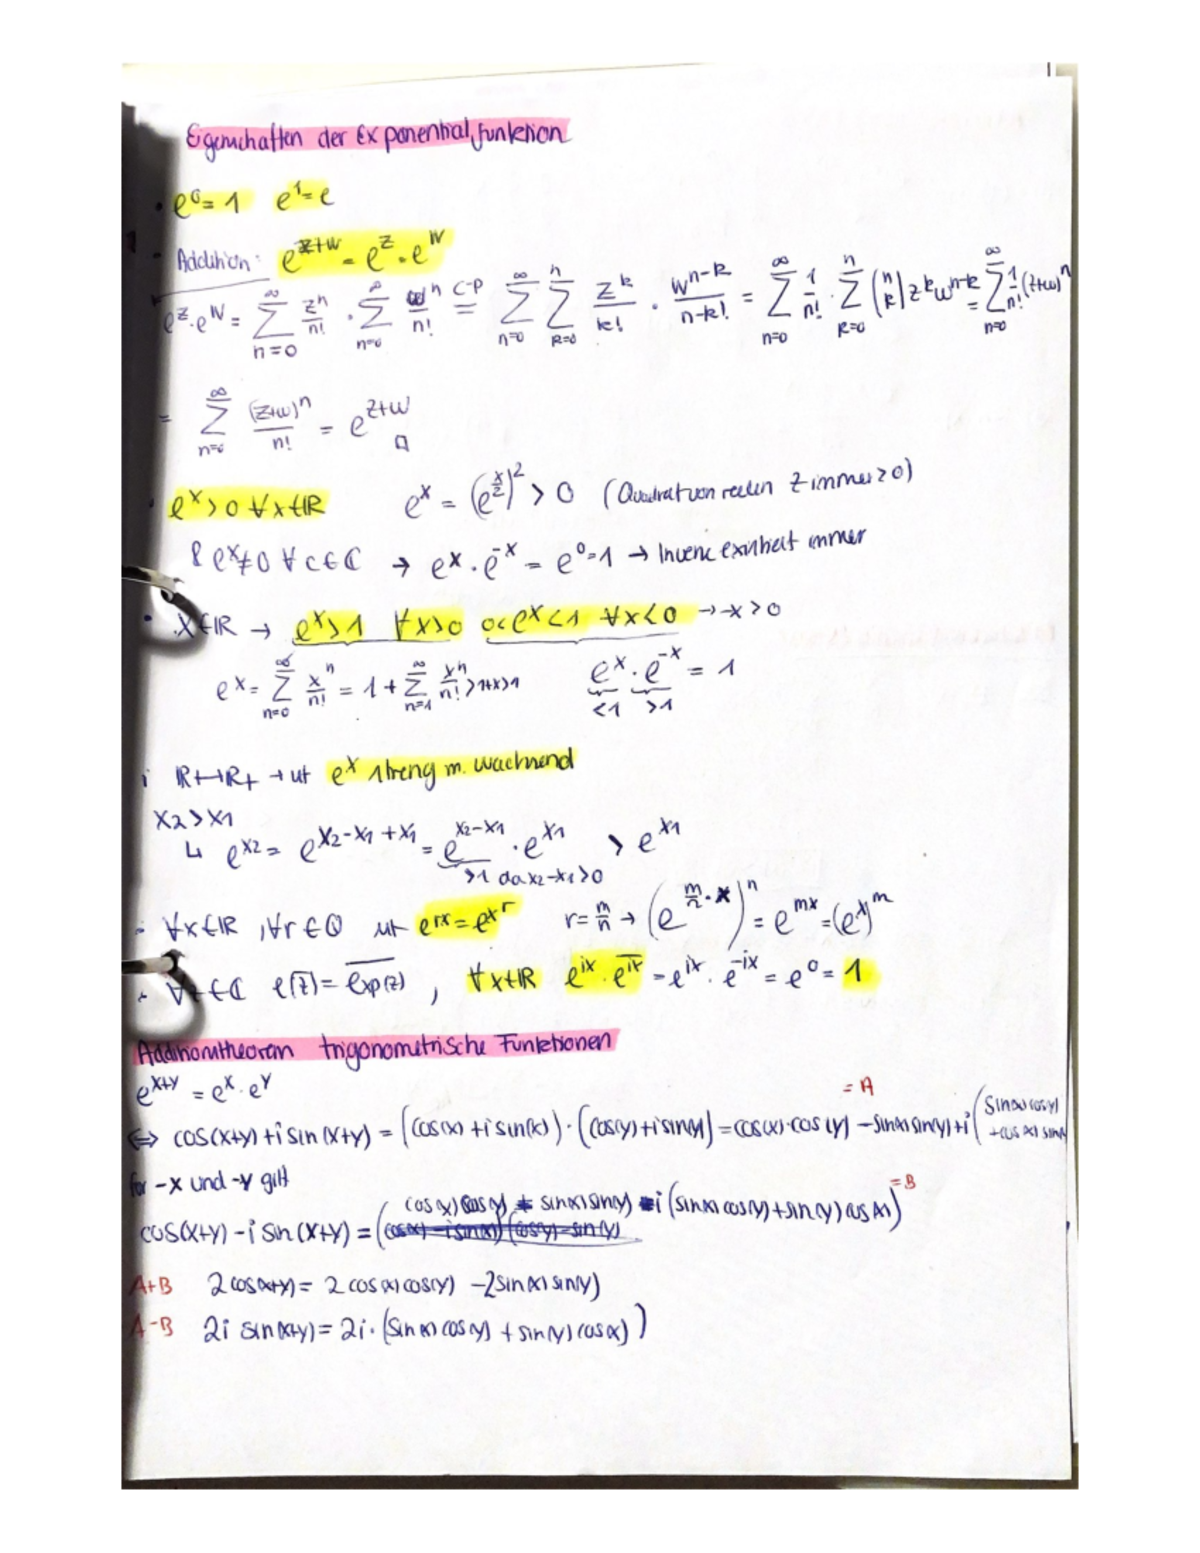 Eigenschaften der Exponentialfunktion
· e^0 = 1   e^1 = e
- Addition: e^{z+w} = e^z · e^w
e^z · e^w = ∑_{n=0}^∞ z^n/n! · ∑_{n=0}^∞ w^n/n! =^{C-P} ∑_{n=0}^∞ ∑_{k=0}^n z^k/k! · w^{n-k}/n-k! = ∑_{n=0}^∞ 1/n! · ∑_{k=0}^n (n k) z^k w^{n-k} = ∑_{n=0}^∞ 1/n! (z+w)^n
= ∑_{n=0}^∞ (z+w)^n/n! = e^{z+w} □
· e^x > 0 ∀x∈ℝ   e^x = (e^{x/2})^2 > 0 (Quadrat von reellen Z immer ≥ 0)
& e^x ≠ 0 ∀c∈ℂ → e^x · e^{-x} = e^0 = 1 → Inverse existiert immer
· x∈ℝ → e^x > 1 ∀x>0   0<e^x<1 ∀x<0 → -x > 0
e^x = ∑_{n=0}^∞ x^n/n! = 1 + ∑_{n=1}^∞ x^n/n! > 1+x > 1   e^x · e^{-x} = 1
<1   >1
ℝ ↦ ℝ+ → ist e^x streng m. wachsend
x2 > x1
↳ e^{x2} = e^{x2-x1+x1} = e^{x2-x1} · e^{x1} > e^{x1}
>1 da x2-x1>0
· ∀x∈ℝ, ∀r∈ℚ ist e^{rx} = e^{x^r}   r = m/n → (e^{m/n · x})^n = e^{mx} = (e^x)^m
- ∀z∈ℂ e(z̅) = \overline{exp(z)}, ∀x∈ℝ e^{ix} · \overline{e^{ix}} = e^{ix} · e^{-ix} = e^0 = 1
Additionstheorem trigonometrische Funktionen
e^{x+y} = e^x · e^y
= A
⇔ cos(x+y) + i sin(x+y) = (cos(x) + i sin(x)) · (cos(y) + i sin(y)) = cos(x) · cos(y) - sin(x) sin(y) + i (sin(x) cos(y) + cos(x) sin(y)
für -x und -y gilt
= B
cos(x+y) - i sin(x+y) = (cos(x) cos(y) - sin(x) sin(y) - i (sin(x) cos(y) + sin(y) cos(x))
A+B   2 cos(x+y) = 2 cos(x) cos(y) - 2 sin(x) sin(y)
A-B   2i sin(x+y) = 2i · (sin(x) cos(y) + sin(y) cos(x))